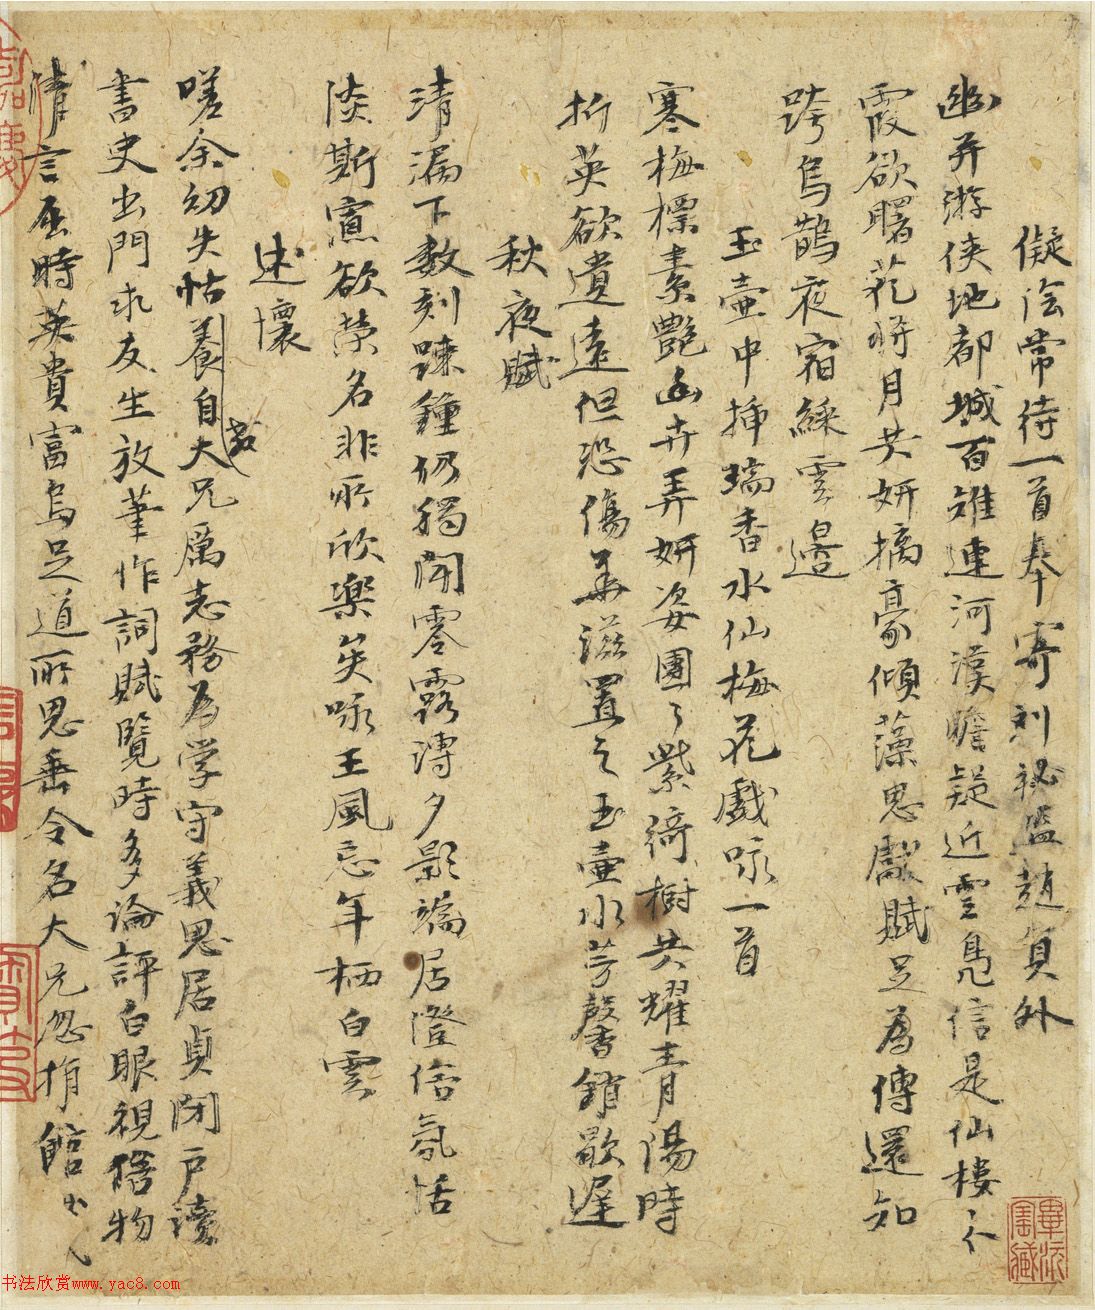 儗淦常待一首奉寄刘祕監趙負外
幽并游侠地都城百雉連河漢瞻疑近雲鳧信是仙樓前
霞欲曙花将月共妍摛豪傾藻思獻賦足為傳還知
跨烏鵲夜宿綵雲邉
玉壷中揷瑞香水仙梅花戲咏一首
寒梅標素艷幽卉弄妍姿團〻紫綺樹共耀青陽時
折英欲遺遠但恐傷華滋置之玉壷水芳馨銷歇遲
秋夜賦
清漏下數刻踈鐘仍獨聞零露漙夕景端居澄俗氛恬
淡斯寡欲榮名非所欣樂矣咏王風忘年栖白雲
述懷
嗟余幼失怙養自大兄厲志務為学守義思居貞閉戸讀
教
書史出門求友生放筆作詞賦覽時多論評白眼視俗物
清言屈時英貴富烏足道所思垂令名大兄忽捐館
書法欣赏www.yac8.com